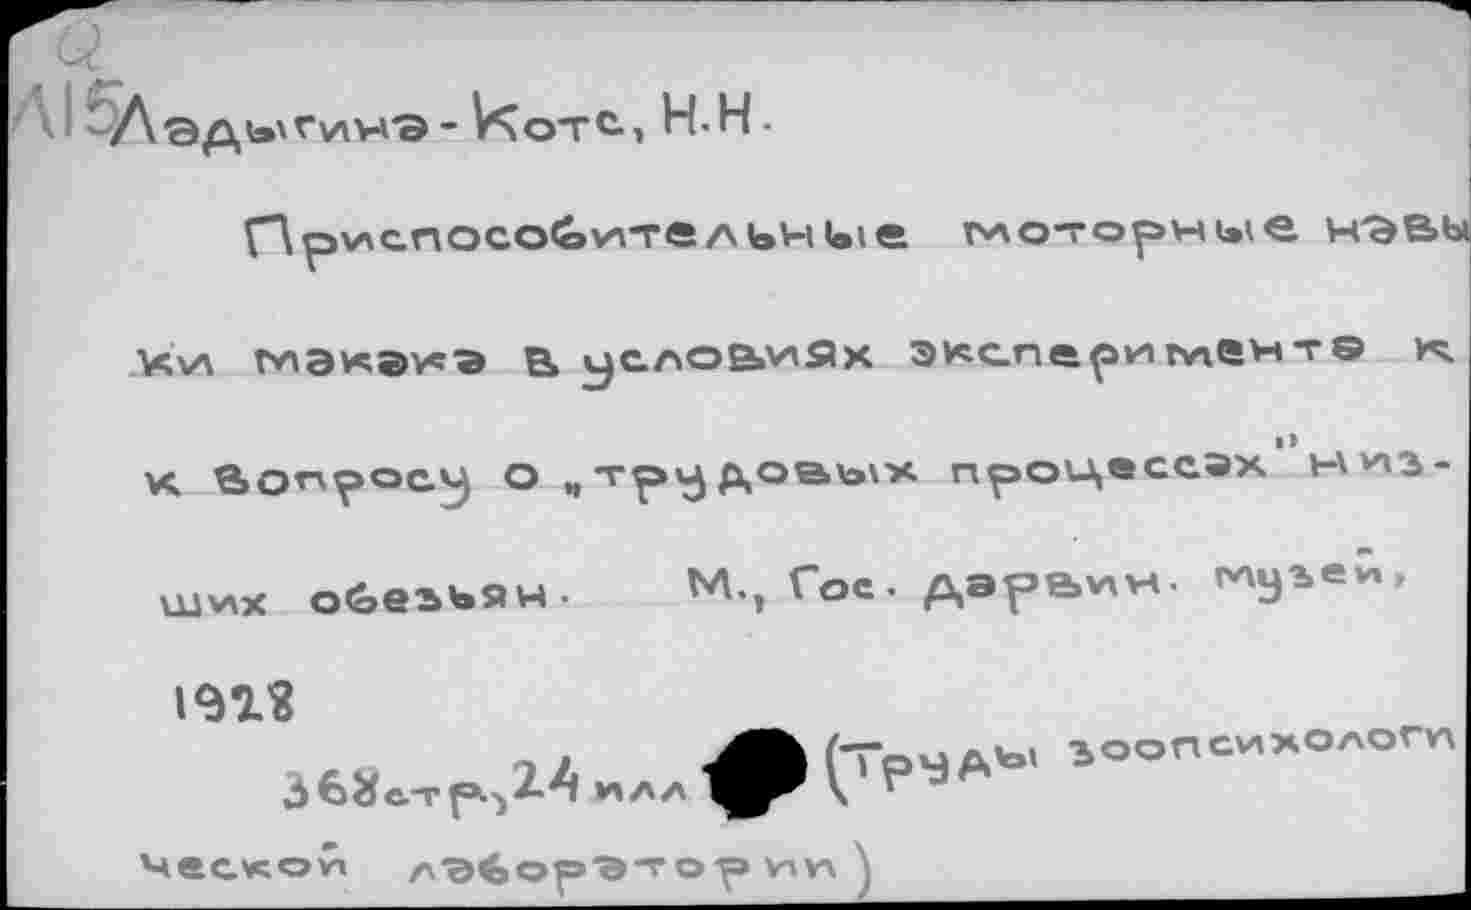 Q
Л15
Ладыгина-Котс, Н.Н.
Приспособительные моторные навы
ки макака в условиях эксперимента к
к вопросу о „трудовых процессах" низ-
ших обезьян. М., Гос. дарвин. музей,
1928
368стр., 24 илл (Труды зоопсихологи
ческой лаборатории)